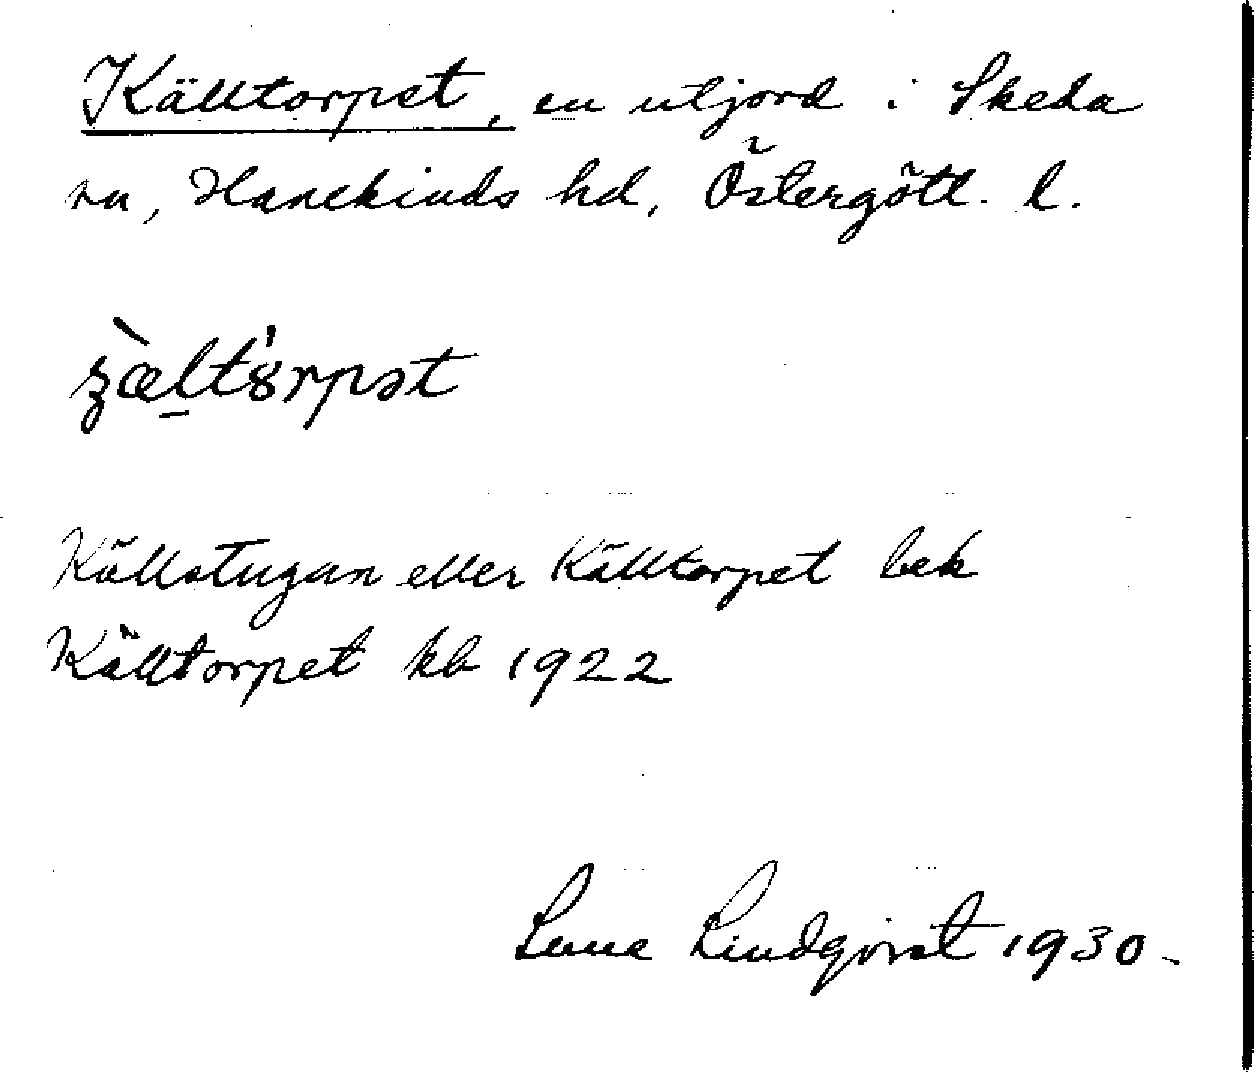 Källtorpet, en utjord i Skeda
sn, Hanekinds hd, Östergötl. l.
Källstugan eller Källtorpet bek
Källtorpet kb 1922
Sune Lindqvist 1930.